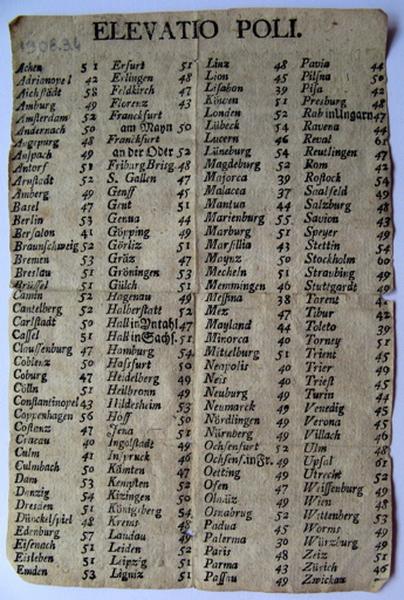 1908.34
ELEVATIO POLI.
Achen 51
Adrianopel 42
Aichstädt 58
Amburg 49
Amsterdam 52
Andernach 50
Augspurg 48
Anspach 49
Antorf 51
Arnstadt 52
Amberg 49
Basel 47
Berlin 53
Bersalon 41
Braunschweig 52
Bremen 53
Breslau 51
Brüssel 51
Camin 52
Cantelberg 52
Carlstadt 50
Cassel 51
Claussenburg 47
Coblenz 50
Coburg 47
Cölln 51
Constantinopel 43
Coppenhagen 56
Costanz 47
Cracau 40
Culm 41
Culmbach 50
Dam 53
Danzig 54
Dresden 51
Dünckelspiel 48
Edenburg 57
Eisenach 51
Eisleben 51
Emden 53
Erfurt 51
Erlingen 48
Feldkirch 47
Florenz 43
Franckfurt
am Mayn 50
Franckfurt
an der Oder 52
Friburg Brisg. 48
S. Gallen 47
Genff 45
Gent 51
Genua 44
Göpping 49
Görliz 51
Gräz 47
Gröningen 53
Gülch 51
Hagenau 49
Halberstatt 52
Hall in Intahl 47
Hall in Sachs. 51
Hamburg 54
Hassfurt 50
Heidelberg 49
Heilbronn 49
Hildesheim 53
Hoff 50
Jena 51
Ingolstadt 49
Inspruck 46
Kämten 47
Kempten 52
Kizingen 50
Königsberg 54
Krems 48
Landau 49
Leiden 52
Leipzig 51
Ligniz 51
Linz 48
Lion 45
Lisabon 39
Löwen 51
Londen 52
Lübeck 54
Lucern 46
Lüneburg 54
Magdeburg 52
Majorca 39
Malacea 37
Mantua 44
Marienburg 55
Marburg 51
Marsillia 43
Maynz 50
Mecheln 51
Memmingen 46
Messina 38
Mez 47
Mayland 44
Minorca 40
Mittelburg 51
Neapolis 40
Neis 40
Neuburg 49
Neumarck 49
Nördlingen 49
Nürnberg 49
Ochsenfurt 52
Ochsen.in Fr. 49
Oetting 49
Ofen 47
Olmüz 49
Osnabrug 52
Padua 45
Palerma 30
Paris 48
Parma 44
Passau 49
Pavia 44
Pilsna 50
Pisa 42
Presburg 48
Rab in Ungarn 47
Ravena 44
Reval 61
Reutlingen 47
Rom 42
Rostock 54
Saalfeld 49
Salzburg 48
Savion 43
Speyer 49
Stettin 54
Stockholm 60
Straubing 49
Stuttgardt 49
Tarent 41
Tibur 42
Toleto 39
Torney 51
Trient 45
Trier 49
Triest 45
Turin 44
Venedig 45
Verona 45
Villach 46
Ulm 48
Upsal 61
Utrecht 52
Weissenburg 49
Wien 48
Wittenberg 53
Worms 49
Würzburg 49
Zeiz 51
Zürich 46
Zwickau